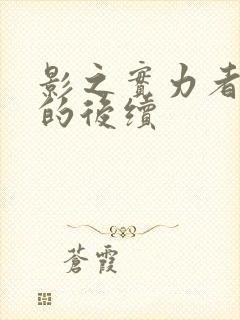 影之實力者
的後續
蒼霞